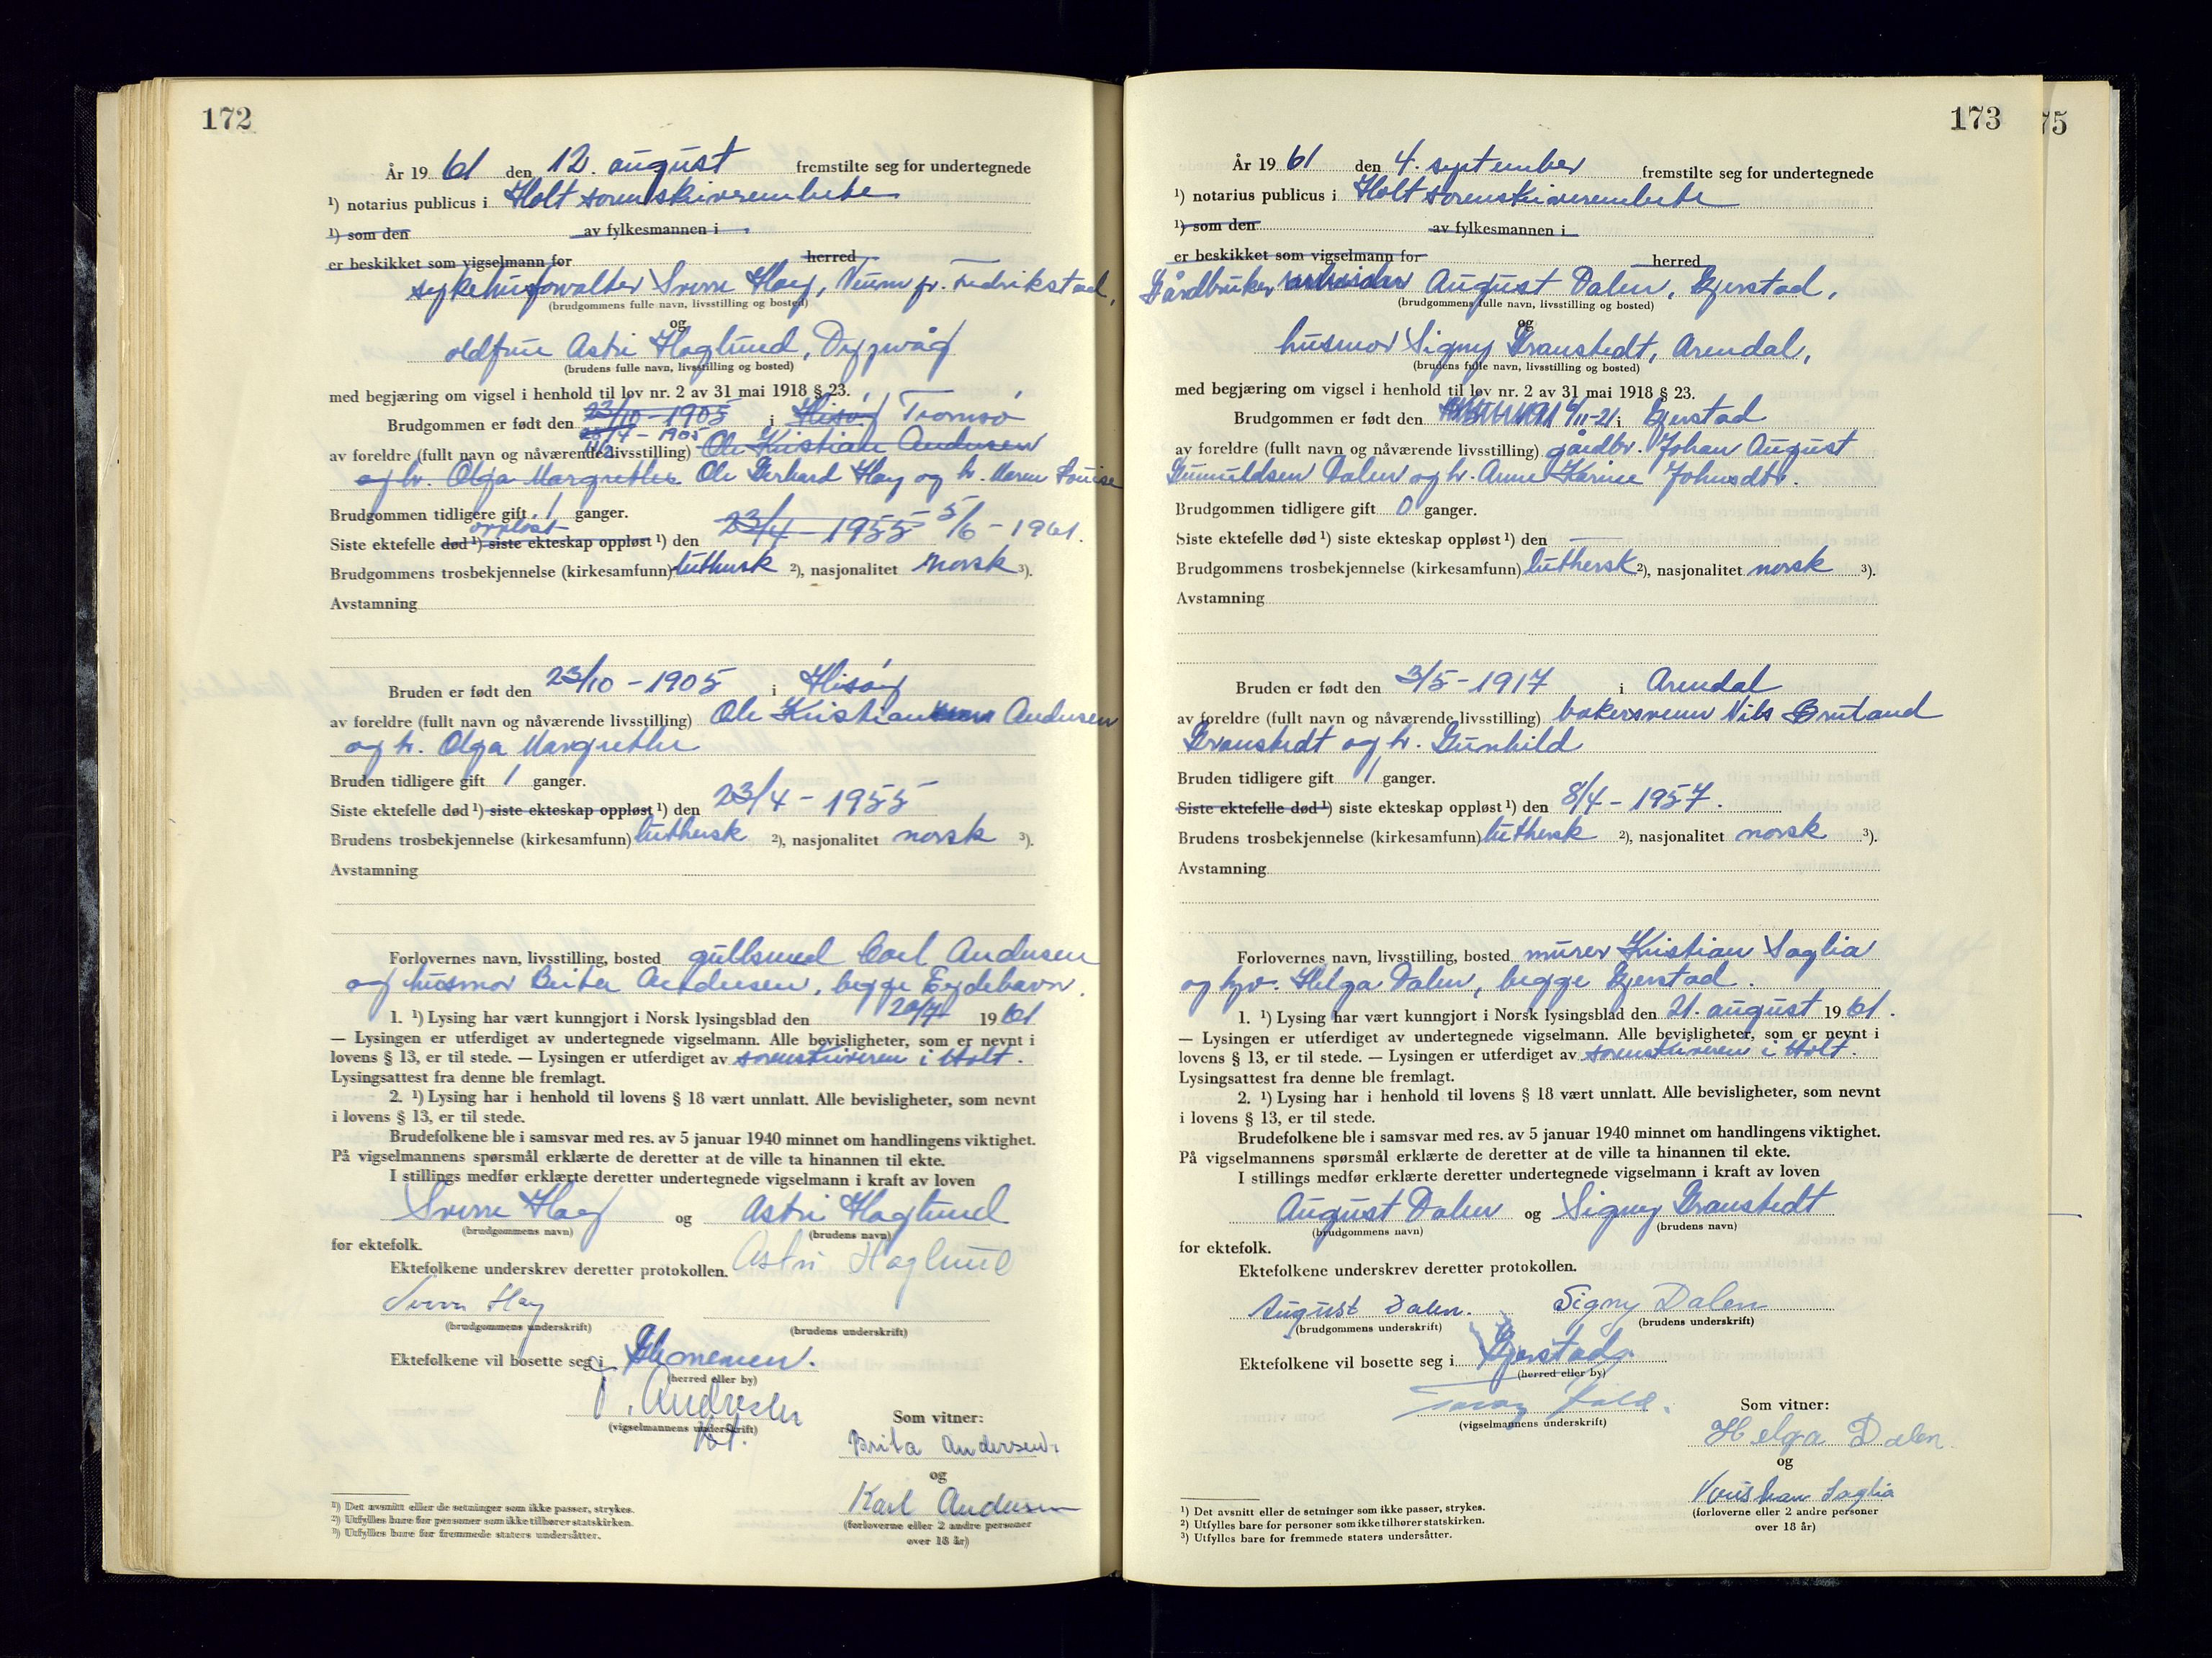 172
År 19 61 den 12. august fremstilte seg for undertegnede
¹) notarius publicus i Holt sorenskriverembete
¹) som den av fylkesmannen i
er beskikket som vigselmann for herred
sykehusforvalter Sverre Høeg, Veum pr. Fredrikstad,
(brudgommens fulle navn, livsstilling og bosted)
og
oldfrue Astri Hoglund, Dypvåg
(brudens fulle navn, livsstilling og bosted)
med begjæring om vigsel i henhold til lov nr. 2 av 31 mai 1918 § 23.
23/10 - 1905
Brudgommen er født den i Hisøy Tromsø
av foreldre (fullt navn og nåværende livsstilling) Ole Kristian Andersen
og h. Olga Margrethe Ole Gerhard Høeg og h. Maren Louise
Brudgommen tidligere gift 1 ganger.
oppløst
Siste ektefelle død ¹) siste ekteskap oppløst ¹) den 23/4 - 1955 5/6 - 1961.
Brudgommens trosbekjennelse (kirkesamfunn) luthersk ²), nasjonalitet norsk ³).
Avstamning
Bruden er født den 23/10 - 1905 i Hisøy
av foreldre (fullt navn og nåværende livsstilling) Ole Kristian Andersen
og h. Olga Margrethe
Bruden tidligere gift 1 ganger.
Siste ektefelle død ¹) siste ekteskap oppløst ¹) den 23/4 - 1955
Brudens trosbekjennelse (kirkesamfunn) luthersk ²), nasjonalitet norsk ³).
Avstamning
Forlovernes navn, livsstilling, bosted gullsmed Carl Andersen
og husmor Brita Andersen, begge Eydehavn.
1. ¹) Lysing har vært kunngjort i Norsk lysingsblad den 20/7 19 61
— Lysingen er utferdiget av undertegnede vigselmann. Alle bevisligheter, som er nevnt i
lovens § 13, er til stede. — Lysingen er utferdiget av sorenskriveren i Holt.
Lysingsattest fra denne ble fremlagt.
2. ¹) Lysing har i henhold til lovens § 18 vært unnlatt. Alle bevisligheter, som nevnt
i lovens § 13, er til stede.
Brudefolkene ble i samsvar med res. av 5 januar 1940 minnet om handlingens viktighet.
På vigselmannens spørsmål erklærte de deretter at de ville ta hinannen til ekte.
I stillings medfør erklærte deretter undertegnede vigselmann i kraft av loven
Sverre Høeg og Astri Hoglund
(brudgommens navn) (brudens navn)
for ektefolk.
Ektefolkene underskrev deretter protokollen. Astri Hoglund
(brudgommens underskrift) (brudens underskrift)
Ektefolkene vil bosette seg i
(herred eller by)
(vigselmannens underskrift)
Som vitner:
Brita Andersen
og
Karl Andersen
(forloverne eller 2 andre personer
over 18 år)
¹) Det avsnitt eller de setninger som ikke passer, strykes.
²) Utfylles bare for personer som ikke tilhører statskirken.
³) Utfylles bare for fremmede staters undersåtter.
173
75
År 19 61 den 4. september fremstilte seg for undertegnede
¹) notarius publicus i Holt sorenskriverembete
¹) som den av fylkesmannen i
er beskikket som vigselmann for herred
Gårdbruker August Dalen, Gjerstad,
(brudgommens fulle navn, livsstilling og bosted)
og
husmor Signy Granstedt, Arendal,
(brudens fulle navn, livsstilling og bosted)
med begjæring om vigsel i henhold til lov nr. 2 av 31 mai 1918 § 23.
Brudgommen er født den 6/11-21 i Gjerstad
av foreldre (fullt navn og nåværende livsstilling) gårdbr. Johan August
Gunnuldsen Dalen og h. Anne Karine Johnsdtr.
Brudgommen tidligere gift 0 ganger.
Siste ektefelle død ¹) siste ekteskap oppløst ¹) den
Brudgommens trosbekjennelse (kirkesamfunn) luthersk ²), nasjonalitet norsk ³).
Avstamning
Bruden er født den 3/5 - 1917 i Arendal
av foreldre (fullt navn og nåværende livsstilling) bakersvenn Nils
Granstedt og h. Gunhild
Bruden tidligere gift 1 ganger.
Siste ektefelle død ¹) siste ekteskap oppløst ¹) den 8/4 - 1957.
Brudens trosbekjennelse (kirkesamfunn) luthersk ²), nasjonalitet norsk ³).
Avstamning
Forlovernes navn, livsstilling, bosted murer Kristian Saglia
og Helga Dalen, begge Gjerstad.
1. ¹) Lysing har vært kunngjort i Norsk lysingsblad den 21. august 19 61.
— Lysingen er utferdiget av undertegnede vigselmann. Alle bevisligheter, som er nevnt i
lovens § 13, er til stede. — Lysingen er utferdiget av sorenskriveren i Holt.
Lysingsattest fra denne ble fremlagt.
2. ¹) Lysing har i henhold til lovens § 18 vært unnlatt. Alle bevisligheter, som nevnt
i lovens § 13, er til stede.
Brudefolkene ble i samsvar med res. av 5 januar 1940 minnet om handlingens viktighet.
På vigselmannens spørsmål erklærte de deretter at de ville ta hinannen til ekte.
I stillings medfør erklærte deretter undertegnede vigselmann i kraft av loven
August Dalen og Signy Granstedt
(brudgommens navn) (brudens navn)
for ektefolk.
Ektefolkene underskrev deretter protokollen.
August Dalen. Signy Dalen
(brudgommens underskrift) (brudens underskrift)
Ektefolkene vil bosette seg i Gjerstad.
(herred eller by)
(vigselmannens underskrift)
Som vitner:
Helga Dalen
og
Kristian Saglia
(forloverne eller 2 andre personer
over 18 år)
¹) Det avsnitt eller de setninger som ikke passer, strykes.
²) Utfylles bare for personer som ikke tilhører statskirken.
³) Utfylles bare for fremmede staters undersåtter.